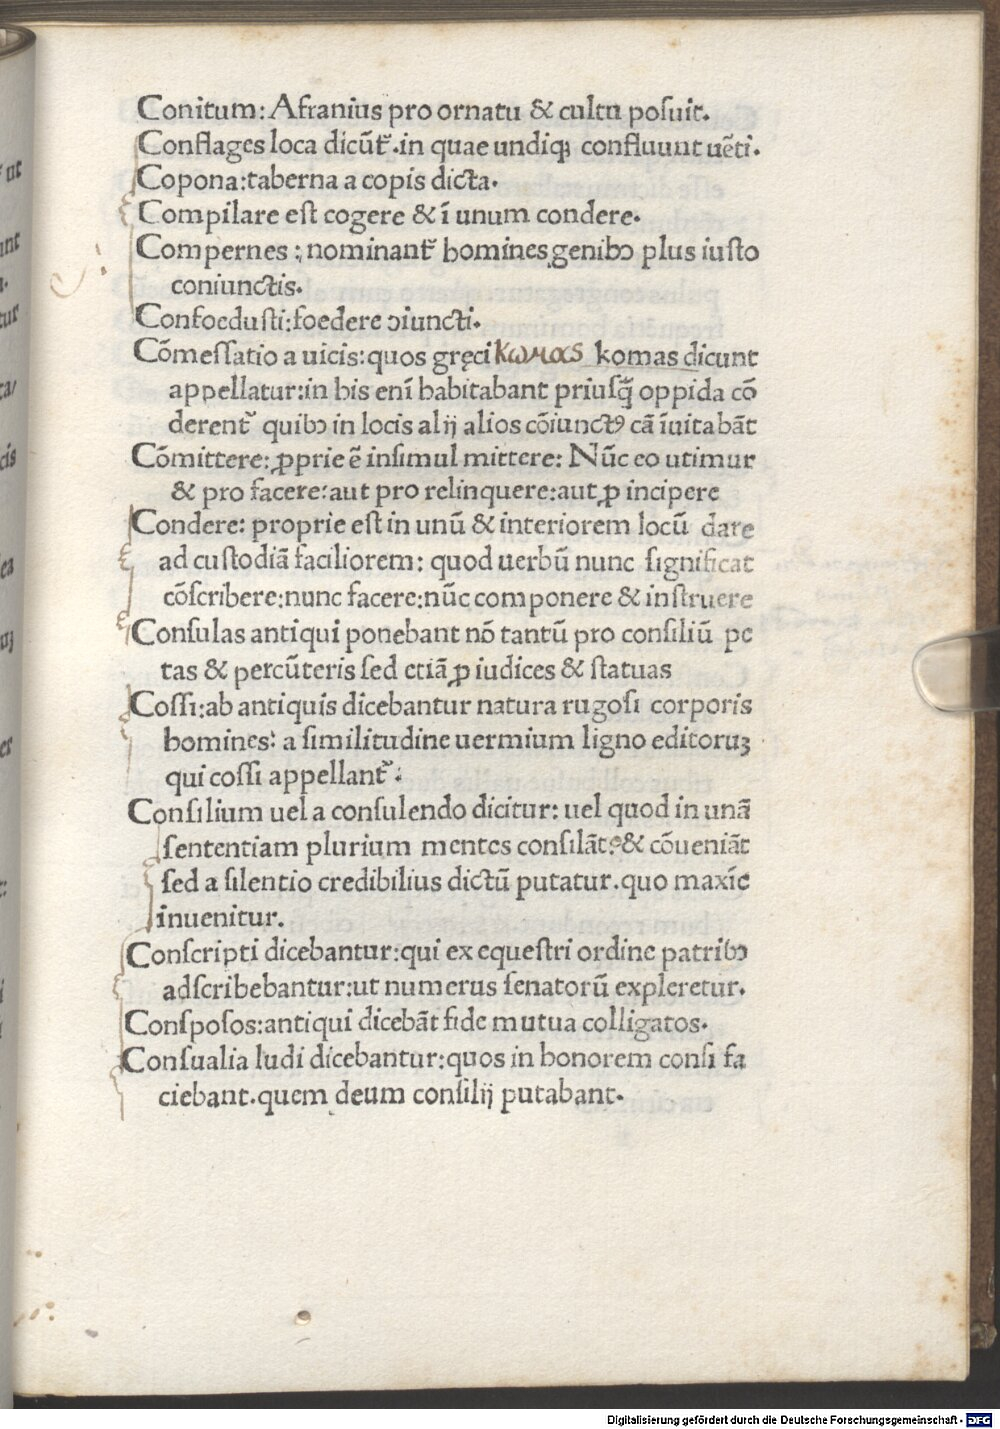 Conitum: Afranius pro ornatu & cultu posuit.
Conflages loca dicūt᷑.in quae undiqꝫ confluunt uēti.
Copona:taberna a copis dicta.
Compilare est cogere & ī unum condere.
Compernes : nominant᷑ homines genibꝰ plus iusto
coniunctis.
Confoedusti:foedere ꝯiuncti.
Cōmessatio a uicis:quos gręci κωμας komas dicunt
appellatur:in his enī habitabant priusq̄ oppida cō
derent᷑ quibꝰ in locis alij alios cōiunctꝰ cā īuitabāt
Cōmittere: ꝓprie ē insimul mittere: Nūc eo utimur
& pro facere:aut pro relinquere:aut ꝓ incipere
Condere: proprie est in unū & interiorem locū dare
ad custodiā faciliorem: quod uerbū nunc significat
cōscribere:nunc facere:nūc componere & instruere
Consulas antiqui ponebant nō tantū pro consiliū pe
tas & percūteris sed etiā ꝓ iudices & statuas
Cossi:ab antiquis dicebantur natura rugosi corporis
homines: a similitudine uermium ligno editoruꝫ
qui cossi appellant᷑:
Consilium uel a consulendo dicitur: uel quod in unā
sententiam plurium mentes consilāt:& cōueniāt
sed a silentio credibilius dictū putatur.quo maxīe
inuenitur.
Conscripti dicebantur:qui ex equestri ordine patribꝰ
adscribebantur:ut numerus senatorū expleretur.
Consposos:antiqui dicebāt fide mutua colligatos.
Consualia ludi dicebantur:quos in honorem consi fa
ciebant.quem deum consilij putabant.
Digitalisierung gefördert durch die Deutsche Forschungsgemeinschaft - DFG